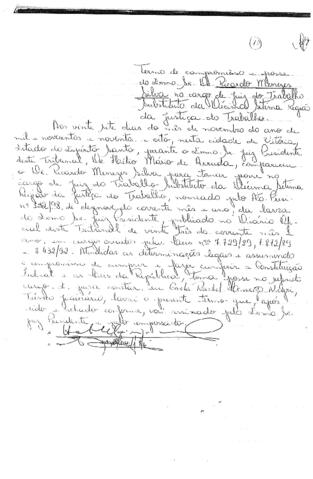 Termo de compromisso e posse
do Exmo. Sr. Dr. Ricardo Menezes
Silva no cargo de Juiz do Trabalho
Substituto da Décima Sétima Região
da Justiça do Trabalho.
Aos vinte sete dias do mês de novembro do ano de
mil e novecentos e noventa e oito, nesta cidade de Vitória,
Estado do Espírito Santo, perante o Exmo. Juiz Presidente
deste Tribunal, Dr. Hélio Mário de Arruda, compareceu
o Dr. Ricardo Menezes Silva para tomar posse no
cargo de Juiz do Trabalho Substituto da Décima Sétima
Região da Justiça do Trabalho, nomeado pelo
do corrente mês e ano, da lavra
do Exmo. Sr. Juiz Presidente, publicado no Diário Ofi-
cial deste Tribunal de vinte três do corrente mês e
ano, em cargo criado pelas Leis nºs 7.729/89, 7.872/89
e 8.432/92. Atendidas as determinações legais e assumindo
o compromisso de cumprir e fazer cumprir a Constituição
Federal e as leis da República, tomou posse no referido
cargo. E, para constar, eu
Técnico Judiciário, lavrei o presente termo que, após
lido e achado conforme, vai assinado pelo Exmo. Sr.
Juiz Presidente e pelo empossado.